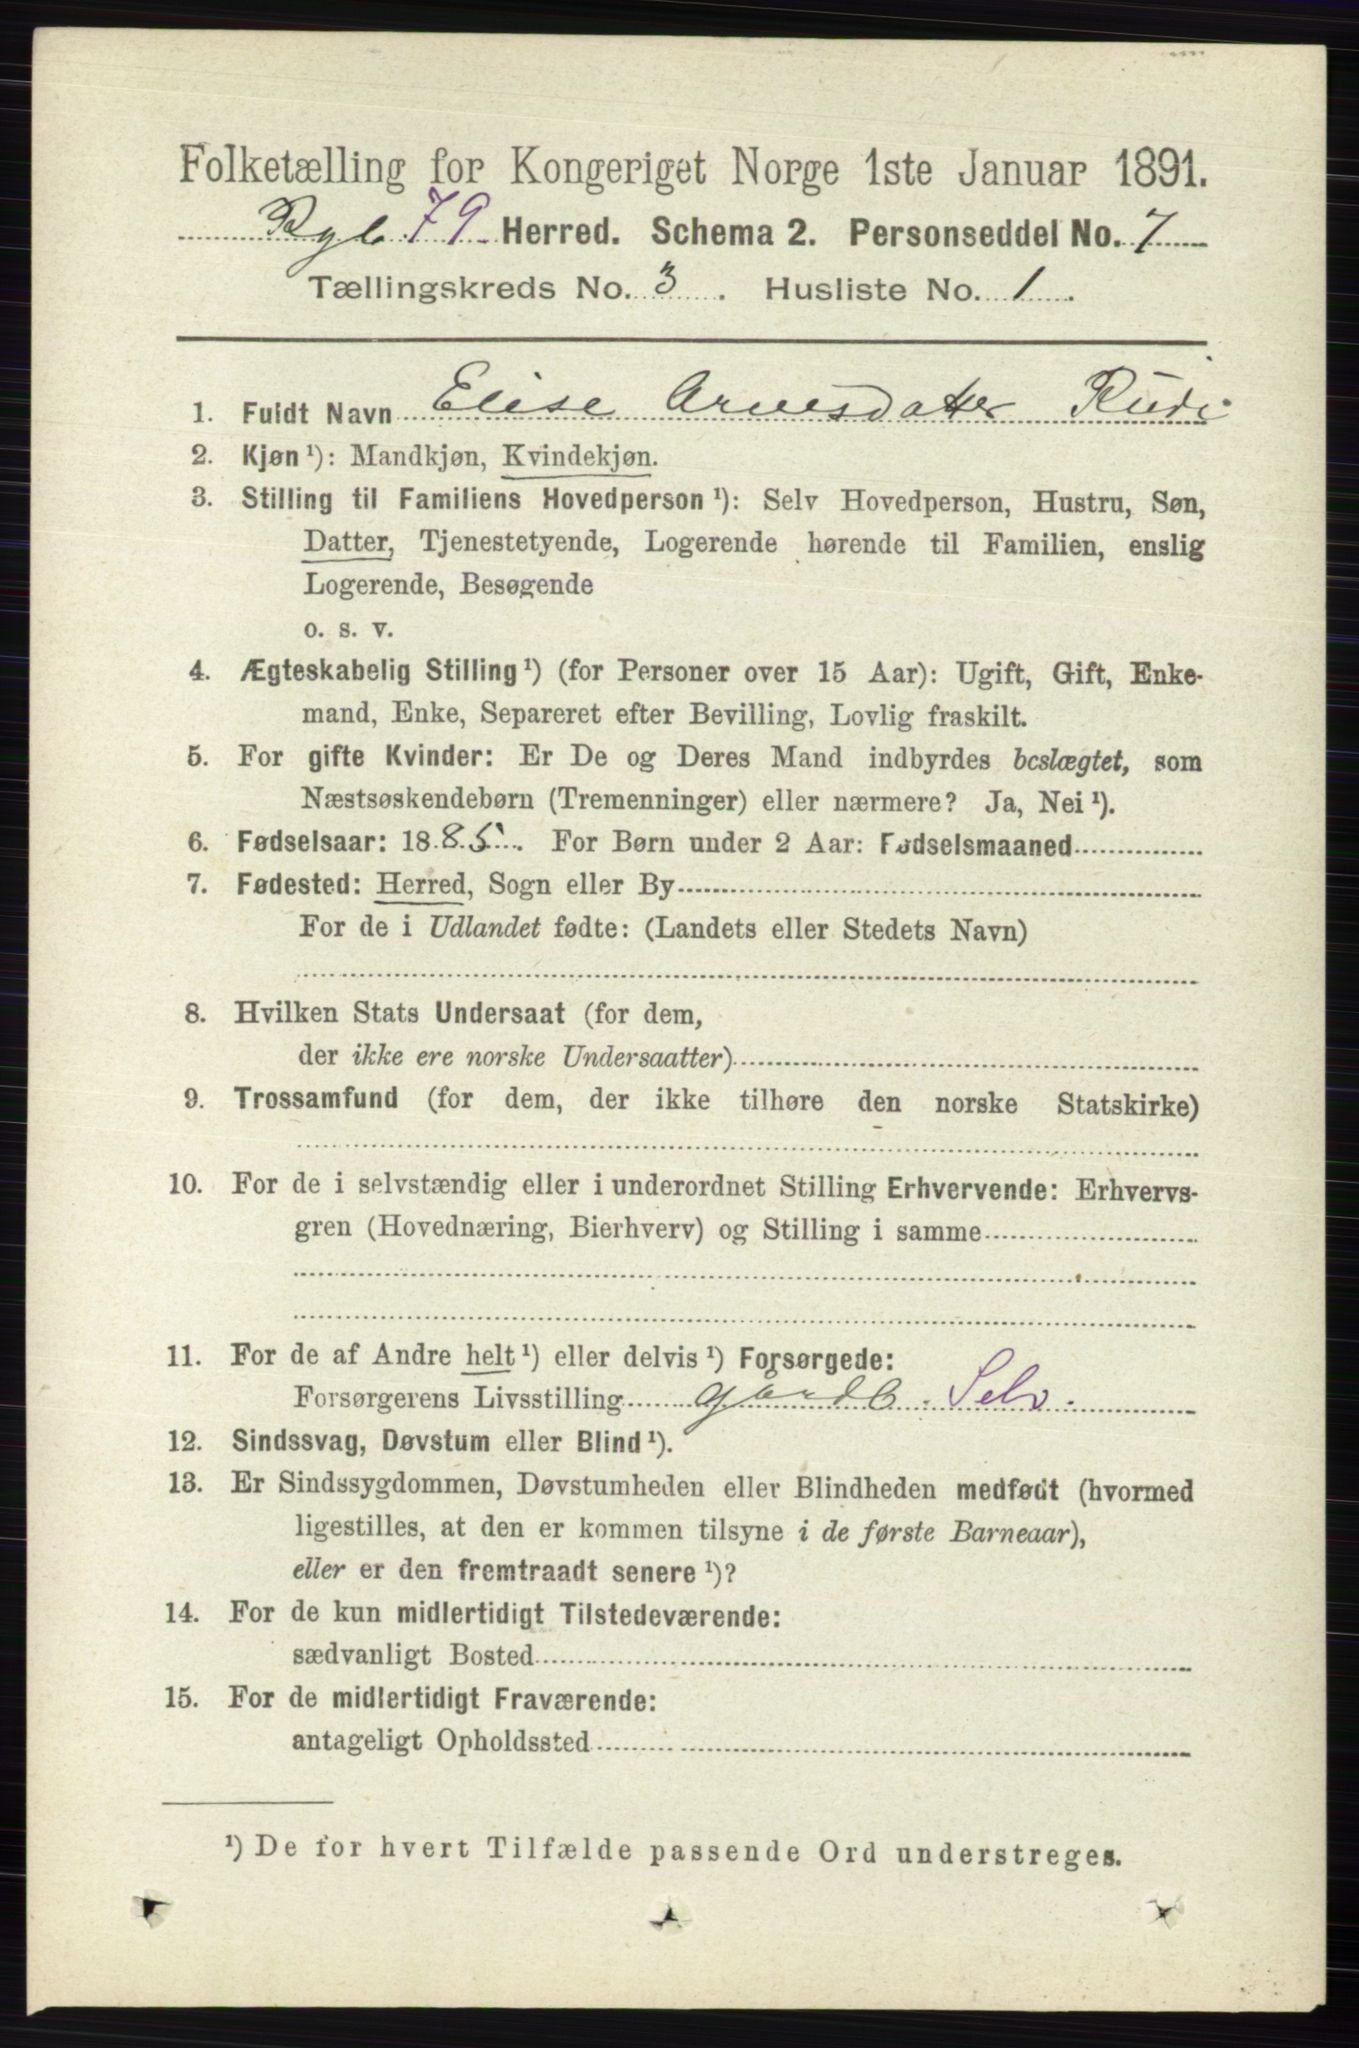 Folketælling for Kongeriget Norge 1ste Januar 1891.
79 Herred. Schema 2. Personseddel No. 7
Tællingskreds No. 3. Husliste No. 1.
1. Fuldt Navn Elise Arnesdatter Rudi
2. Kjøn ¹): Mandkjøn, Kvindekjøn.
3. Stilling til Familiens Hovedperson ¹): Selv Hovedperson, Hustru, Søn,
Datter, Tjenestetyende, Logerende hørende til Familien, enslig
Logerende, Besøgende
o. s. v.
4. Ægteskabelig Stilling ¹) (for Personer over 15 Aar): Ugift, Gift, Enke-
mand, Enke, Separeret efter Bevilling, Lovlig fraskilt.
5. For gifte Kvinder: Er De og Deres Mand indbyrdes beslægtet, som
Næstsøskendebørn (Tremenninger) eller nærmere? Ja, Nei ¹).
6. Fødselsaar: 1885. For Børn under 2 Aar: Fødselsmaaned
7. Fødested: Herred, Sogn eller By
For de i Udlandet fødte: (Landets eller Stedets Navn)
8. Hvilken Stats Undersaat (for dem,
der ikke ere norske Undersaatter)
9. Trossamfund (for dem, der ikke tilhøre den norske Statskirke)
10. For de i selvstændig eller i underordnet Stilling Erhvervende: Erhvervs-
gren (Hovednæring, Bierhverv) og Stilling i samme
11. For de af Andre helt ¹) eller delvis ¹) Forsørgede:
Forsørgerens Livsstilling gardb. Selv.
12. Sindssvag, Døvstum eller Blind ¹).
13. Er Sindssygdommen, Døvstumheden eller Blindheden medfødt (hvormed
ligestilles, at den er kommen tilsyne i de første Barneaar),
eller er den fremtraadt senere ¹)?
14. For de kun midlertidigt Tilstedeværende:
sædvanligt Bosted
15. For de midlertidigt Fraværende:
antageligt Opholdssted
¹) De for hvert Tilfælde passende Ord understreges.